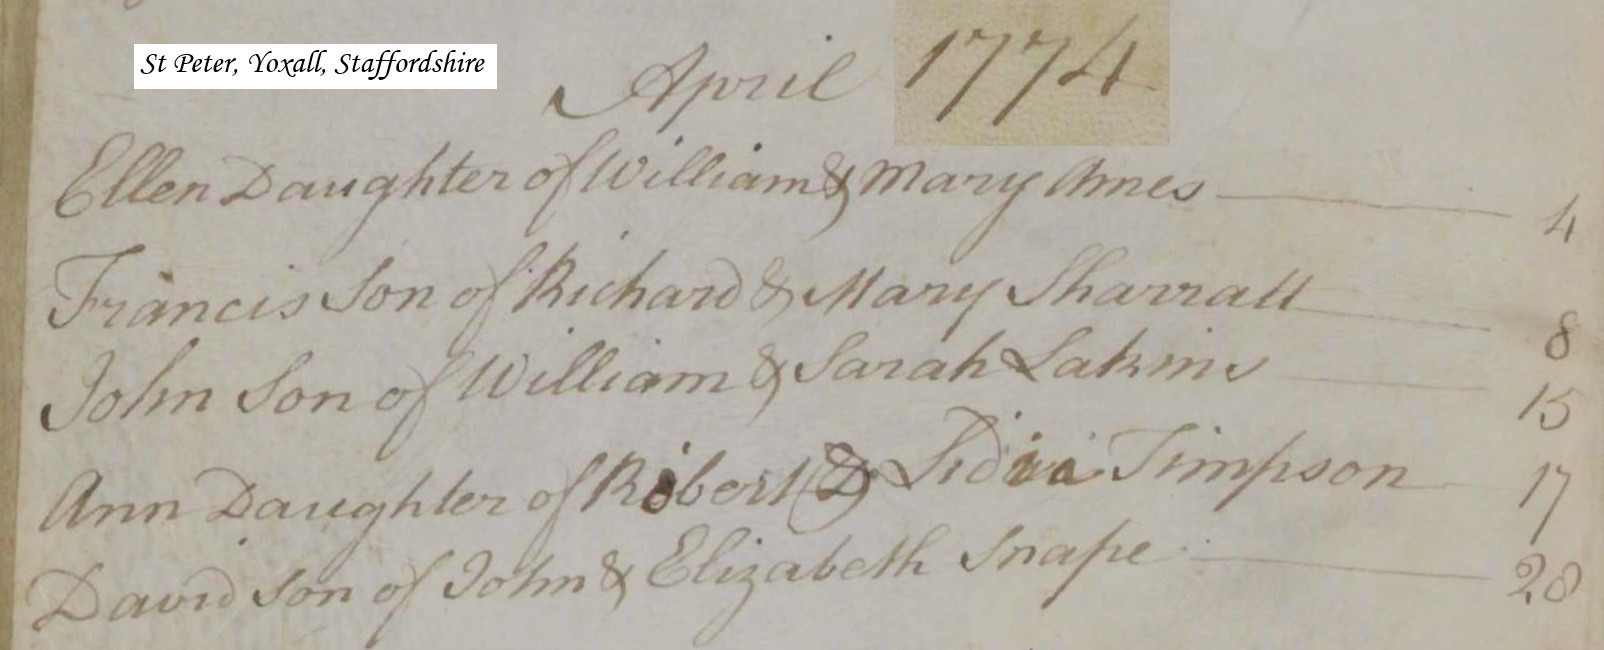 St Peter, Yoxall, Staffordshire
April 1774
Ellen Daughter of William & Mary Ames 4
Francis Son of Richard & Mary Sharratt 8
John Son of William & Sarah Lakins 15
Ann Daughter of Robert & Lidia Timpson 17
David Son of John & Elizabeth Snape 28